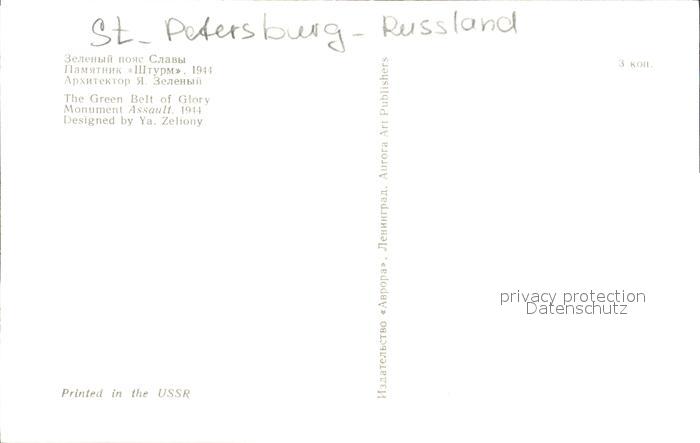 St. Petersburg - Russland
Зеленый пояс Славы
Памятник «Штурм», 1944
Архитектор Я. Зеленый
The Green Belt of Glory
Monument Assault, 1944
Designed by Ya. Zeliony
Printed in the USSR
Издательство «Аврора», Ленинград. Aurora Art Publishers
3 коп.
privacy protection
Datenschutz